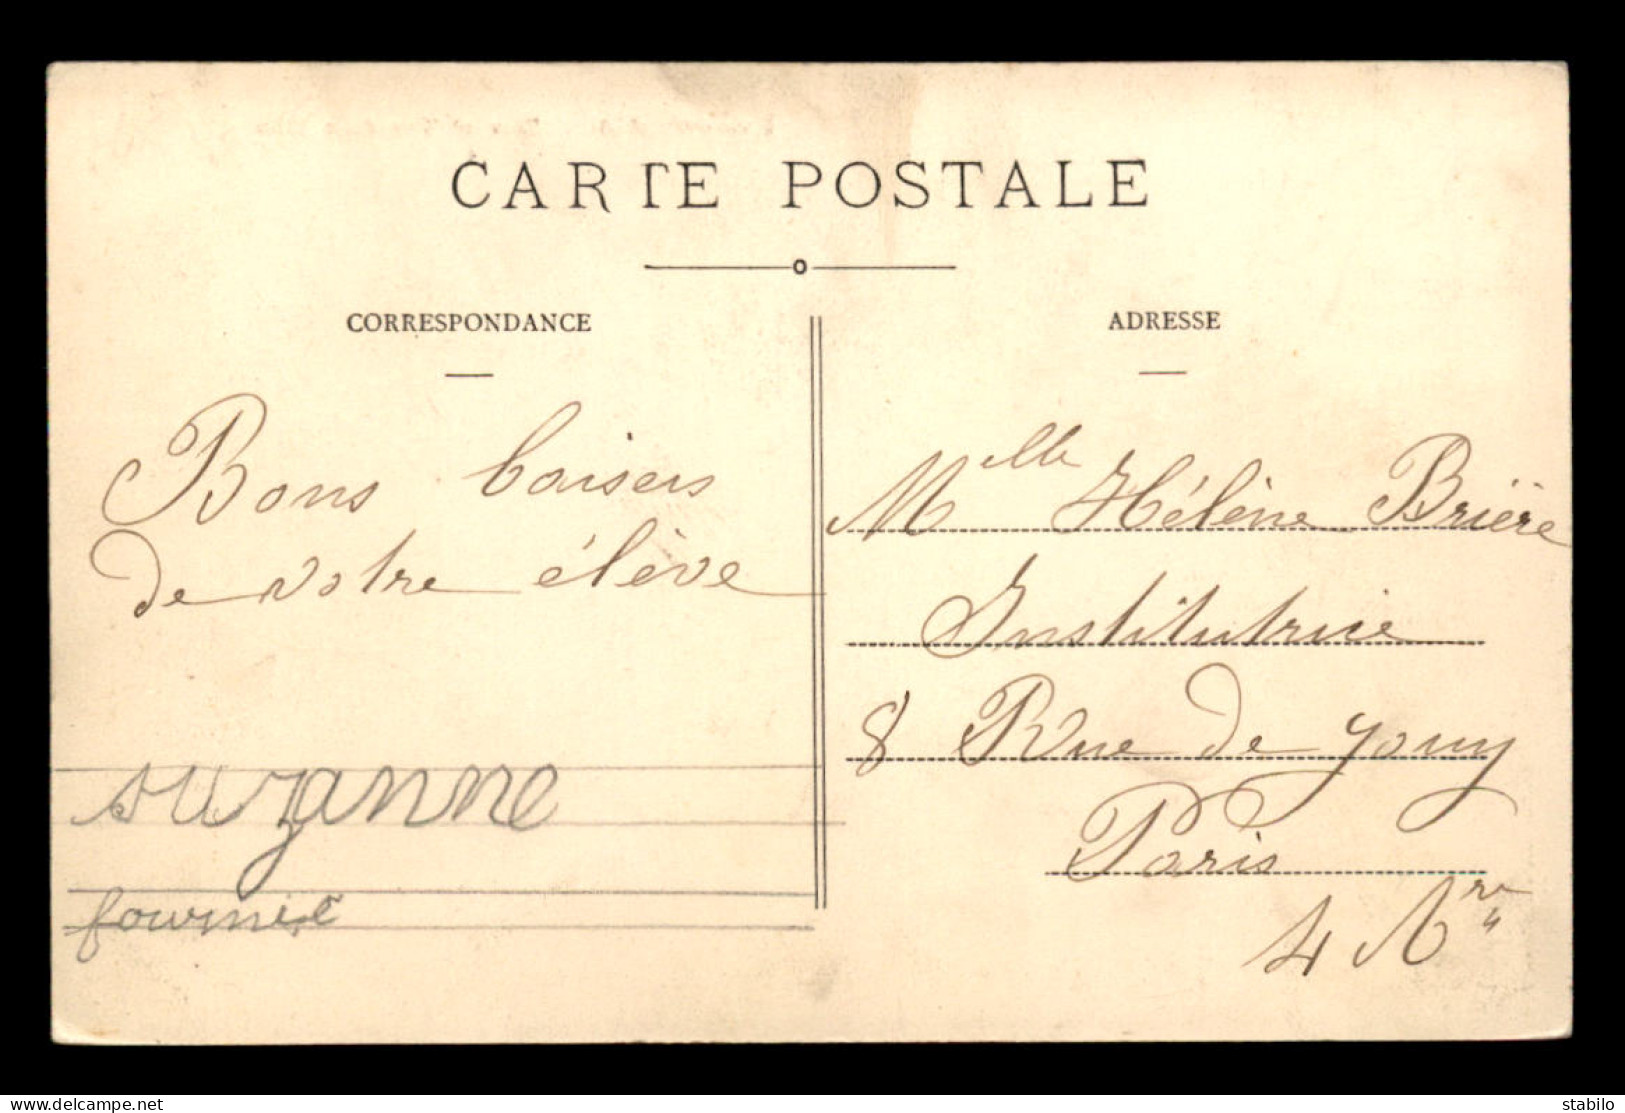 CARTE POSTALE
CORRESPONDANCE
ADRESSE
Bons baisers
de votre élève
suzanne
fournier
Mlle Hélène Brière
Institutrice
8 Rue de Jouy
Paris
4 Arr
www.delcampe.net
stabilo